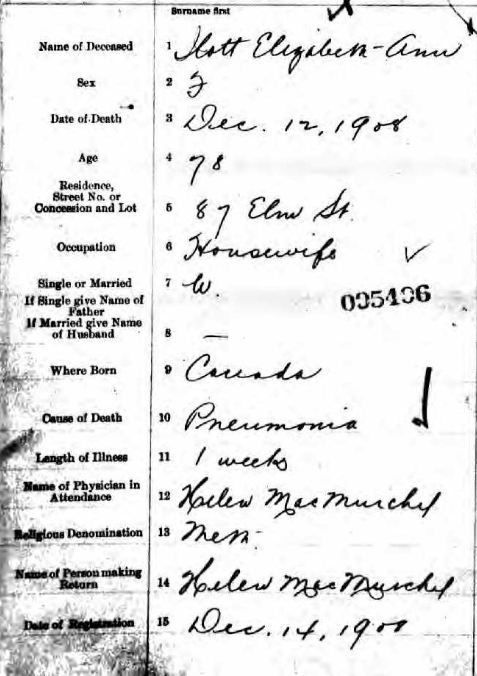 Surname first
Name of Deceased 1 Hott Elizabeth-Ann
Sex 2 F
Date of Death 3 Dec. 12, 1908
Age 4 78
Residence,
Street No. or
Concession and Lot 5 87 Elm St.
Occupation 6 Housewife
Single or Married 7 W
005406
If Single give Name of
Father
If Married give Name
of Husband 8 —
Where Born 9 Canada
Cause of Death 10 Pneumonia
Length of Illness 11 1 weeks
Name of Physician in
Attendance 12 Helen MacMurchy
Religious Denomination 13 Meth.
Name of Person making
Return 14 Helen MacMurchy
Date of Registration 15 Dec. 14, 1908